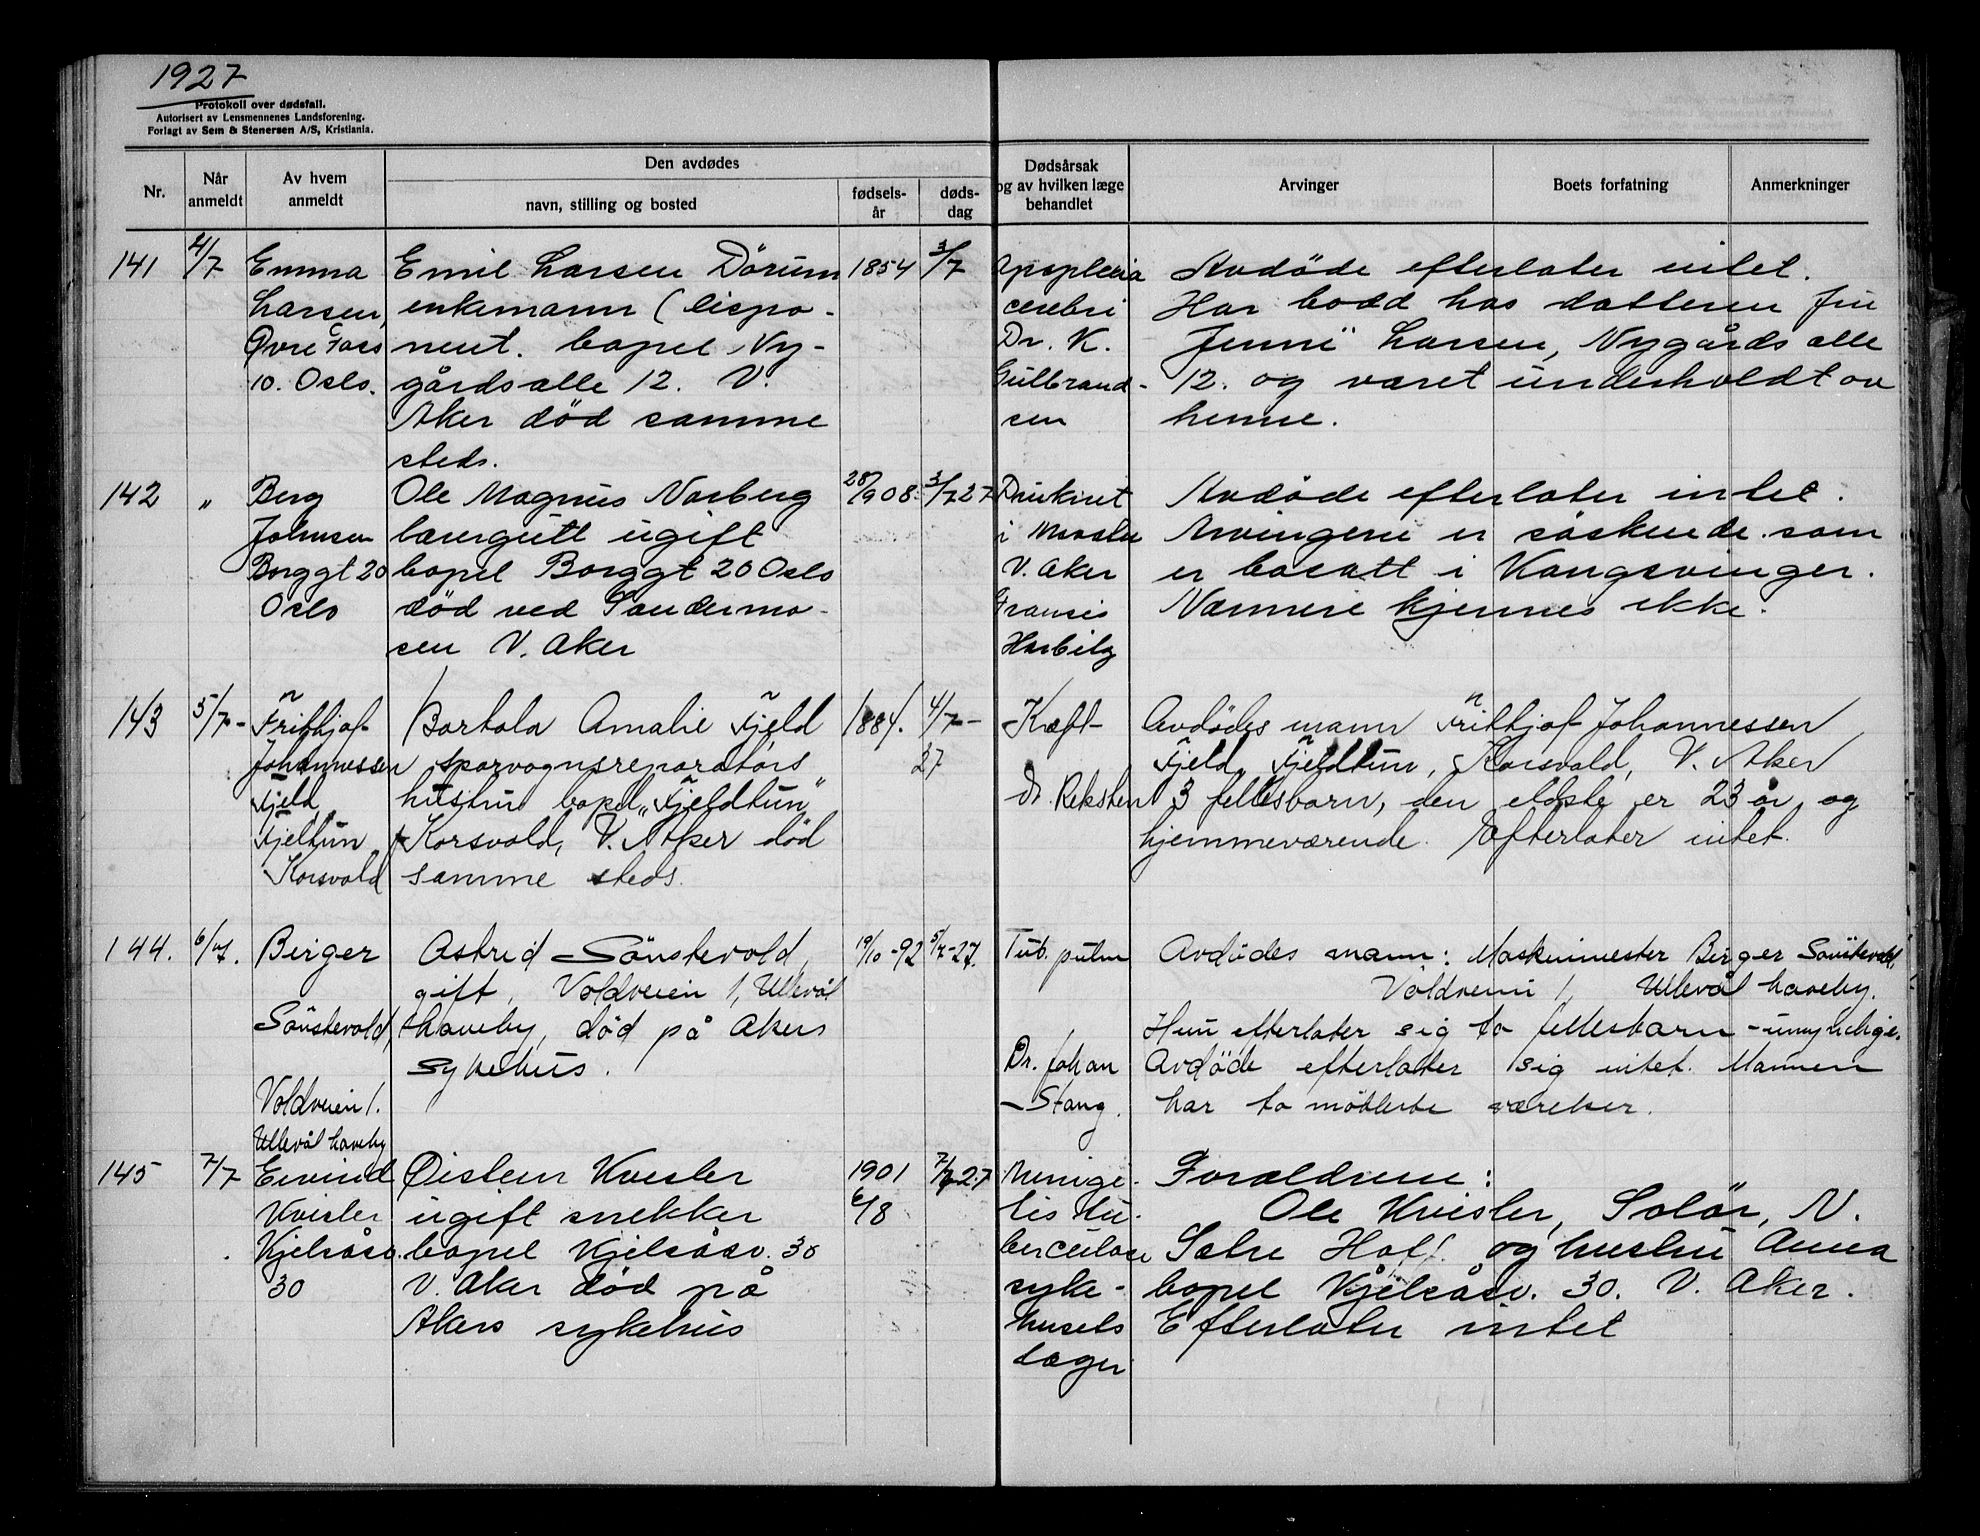 1927
Protokoll over dødsfall.
Autorisert av Lensmennenes Landsforening.
Forlagt av Sem & Stenersen A/S, Kristiania.
Nr.
Når anmeldt
Av hvem anmeldt
Den avdødes
navn, stilling og bosted
fødsels-år
døds-dag
Dødsårsak og av hvilken læge behandlet
Arvinger
Boets forfatning
Anmerkninger
141
4/7
Emma
Larsen,
Øvre Foss
10. Oslo.
Emil Larsen Dörum
enkemann (dispo-
nent. bopel Ny-
gårdsalle 12. V.
Aker död samme
steds.
1854
3/7
Apoplexia
cerebri
Dr. K.
Gulbrand-
sen
Avdöde efterlater intet.
Har bodd hos datteren fru
Jenni Larsen, Nygårds alle
12. og været underholdt av
henne.
142
"
Berg
Johnsen
Borggt 20
Oslo
Ole Magnus Norberg
læregutt ugift
bopel Borggt 20 Oslo
död ved Sandermo-
sen V. Aker
28/9 08.
3/7 27
Druknet
i
V. Aker
Avdöde efterlater intet.
Arvingene er söskende som
er bosatt i Kongsvinger.
Nærmere kjennes ikke.
143
5/7-
Frithjof
Johannessen
Fjeld
Fjeltun
Korsvold
Bortola Amalie Fjeld
sporvognsreparatörs
hustru bopel "Fjeldtun"
Korsvold, V. Aker död
samme steds.
1884.
4/7-
27
Kræft
Dr. Reksten
Avdödes mann Frithjof Johannessen
Fjeld, Fjeldtun, Korsvold, V. Aker
3 fellesbarn, den eldste er 23 år, og
hjemmeværende. Efterlater intet.
144.
6/7.
Birger
Sönstevold,
Voldveien 1.
Ullevål haveby
Astrid Sönstevold,
gift, Voldveien 1, Ullevål
haveby, död på Akers
sykehus.
19/10-92
5/7-27.
Tub. pulm
Dr. Johan
Stang.
Avdödes mann: Maskinmester Birger Sönstevold,
Voldveien 1, Ullevål haveby.
Hun efterlater sig to fellesbarn - umyndige.
Avdöde efterlater sig intet. Mannen
har to möblerte værelser.
145
7/7
Eivind
Kvisler
Kjelsåsv.
30
Øistein Kvisler
ugift snekker
bopel Kjelsåsv. 30
V. Aker död på
Akers sykehus
1901
6/8
7/7 27
Menige-
tis tu-
berculose
syke-
husets
læger
Forældrene:
Ole Kvisler, Solör, N.
og hustru Anna
bopel Kjelsåsv. 30. V. Aker.
Efterlater intet